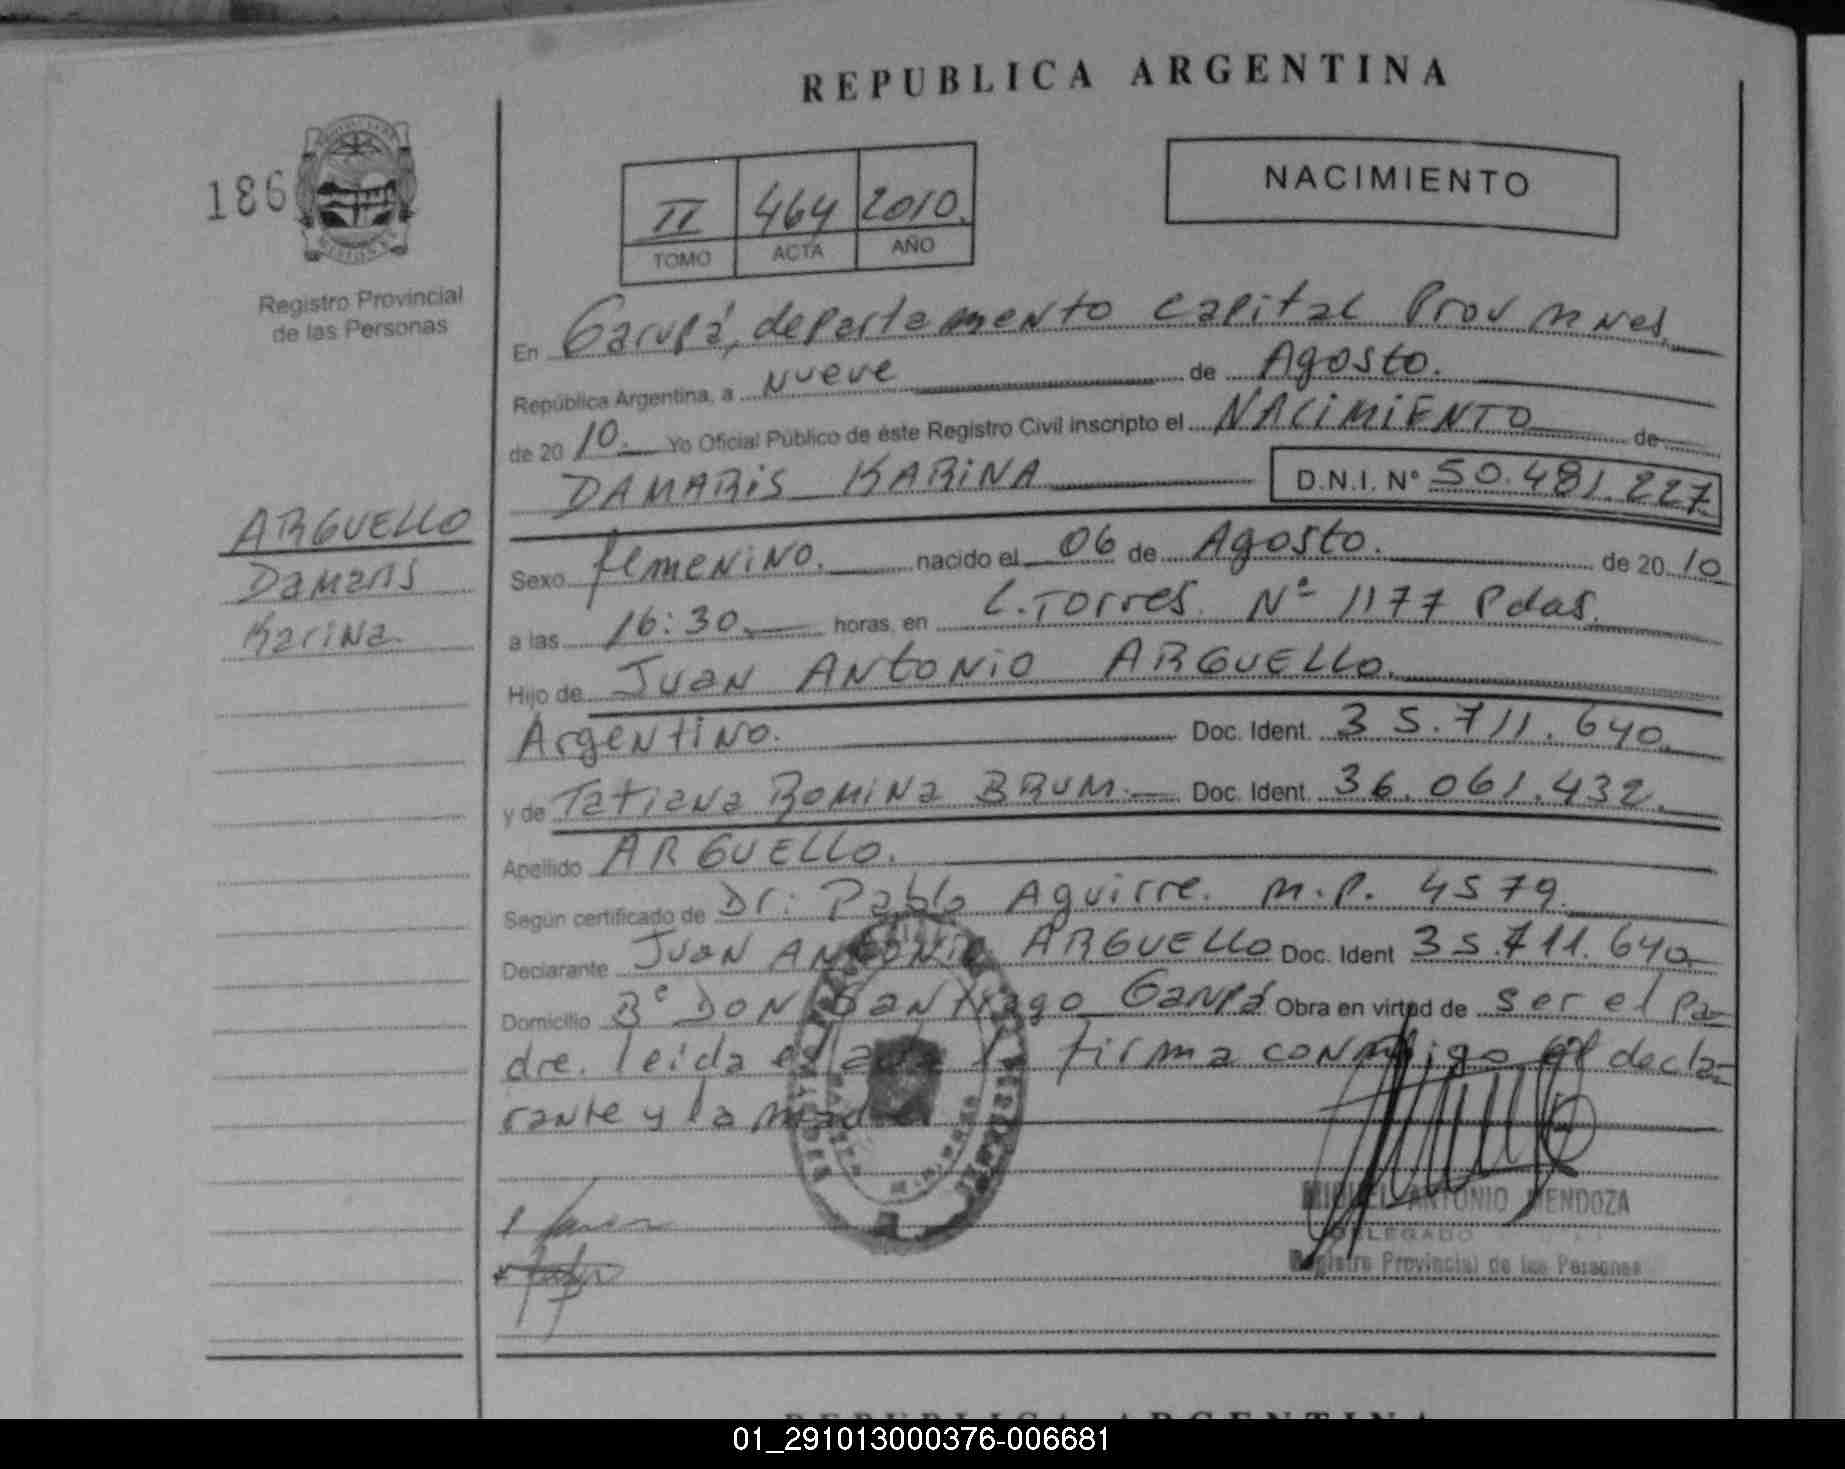 REPUBLICA ARGENTINA
186
NACIMIENTO
II 464 2010.
TOMO ACTA AÑO
Registro Provincial
de las Personas
En Garupá, departamento Capital Prov Mnes,
República Argentina, a nueve de Agosto.
de 2010. Yo Oficial Público de éste Registro Civil inscripto el NACIMIENTO de
DAMARIS KARINA D.N.I. N° 50.481.227
ARGUELLO
Damaris
Karina
Sexo femenino. nacido el 06 de Agosto. de 2010
a las 16:30 horas, en L. Torres. N° 1177 Pdas.
Hijo de Juan Antonio ARGUELLO.
Argentino. Doc. Ident. 35.711.640.
y de Tatiana Romina BRUM. Doc. Ident. 36.061.432.
Apellido ARGUELLO.
Según certificado de Dr: Pablo Aguirre. M.P. 4579.
Declarante Juan Antonio ARGUELLO Doc. Ident 35.711.640
Domicilio B° DON Santiago Garupá Obra en virtud de ser el pa-
dre. leida el firma conmigo el decla-
rante y la
MIGUEL ANTONIO MENDOZA
DELEGADO
Registro Provincial de las Personas
REPUBLICA ARGENTINA
01_291013000376-006681